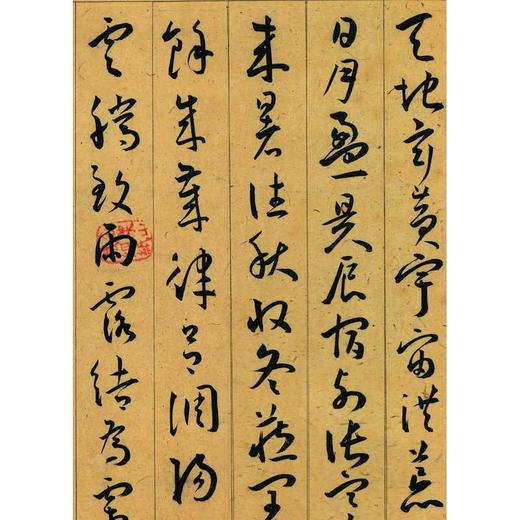 天地玄黃宇宙洪荒
日月盈昃辰宿列張寒
來暑往秋收冬藏閏
餘成歲律呂調陽
雲騰致雨露結為霜